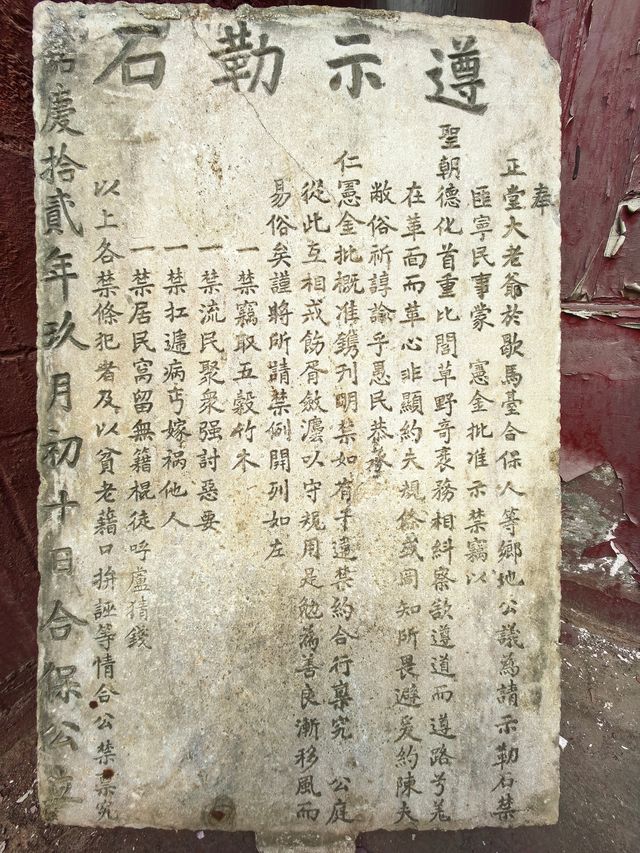 遵示勒石
奉
正堂大老爺於歇馬臺合保人等鄉地公議為請示勒石禁
匪寧民事蒙 憲金批准示禁竊以
聖朝德化首重比閭草野奇衺務相糾察欲遵道而遵路兮羗
在革面而革心非顯約夫規條或罔知所畏避爰約陳夫
敝俗祈諄諭乎愚民恭
仁憲金批概准鐫列明禁如有干違禁約合行稟究 公庭
從此互相戒飭胥斂灋以守規用是勉為善良漸移風而
易俗矣謹將所請禁例開列如左
一禁竊取五穀竹木
一禁流民聚衆强討惡要
一禁扛遞病丐嫁祸他人
一禁居民窩留無籍棍徒呼盧猜錢
以上各禁條犯者及以貧老藉口拚誣等情合公禁稟究
嘉慶拾貳年玖月初十日合保公立